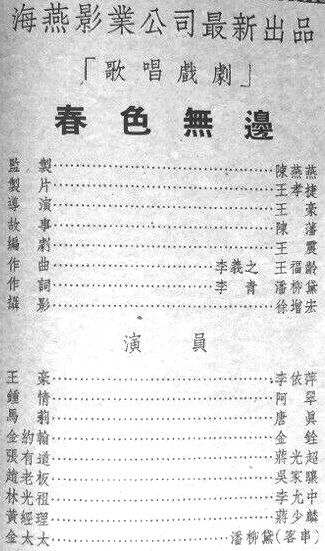 海燕影業公司最新出品
「歌唱戲劇」
春色無邊
監製……陳燕燕
製片……王孝捷
導演……王豪
故事……陳藩
編劇……王震
作曲……李義之 王福齡
作詞……李青 潘柳黛
攝影……徐增宏
演員
王豪……李依萍
鍾情……阿翠
馬莉……唐眞
金約翰……金銓
張有道……蔣光超
趙老板……吳家驤
林光祖……李允中
黃經理……蔣少麟
金太太……潘柳黛(客串)